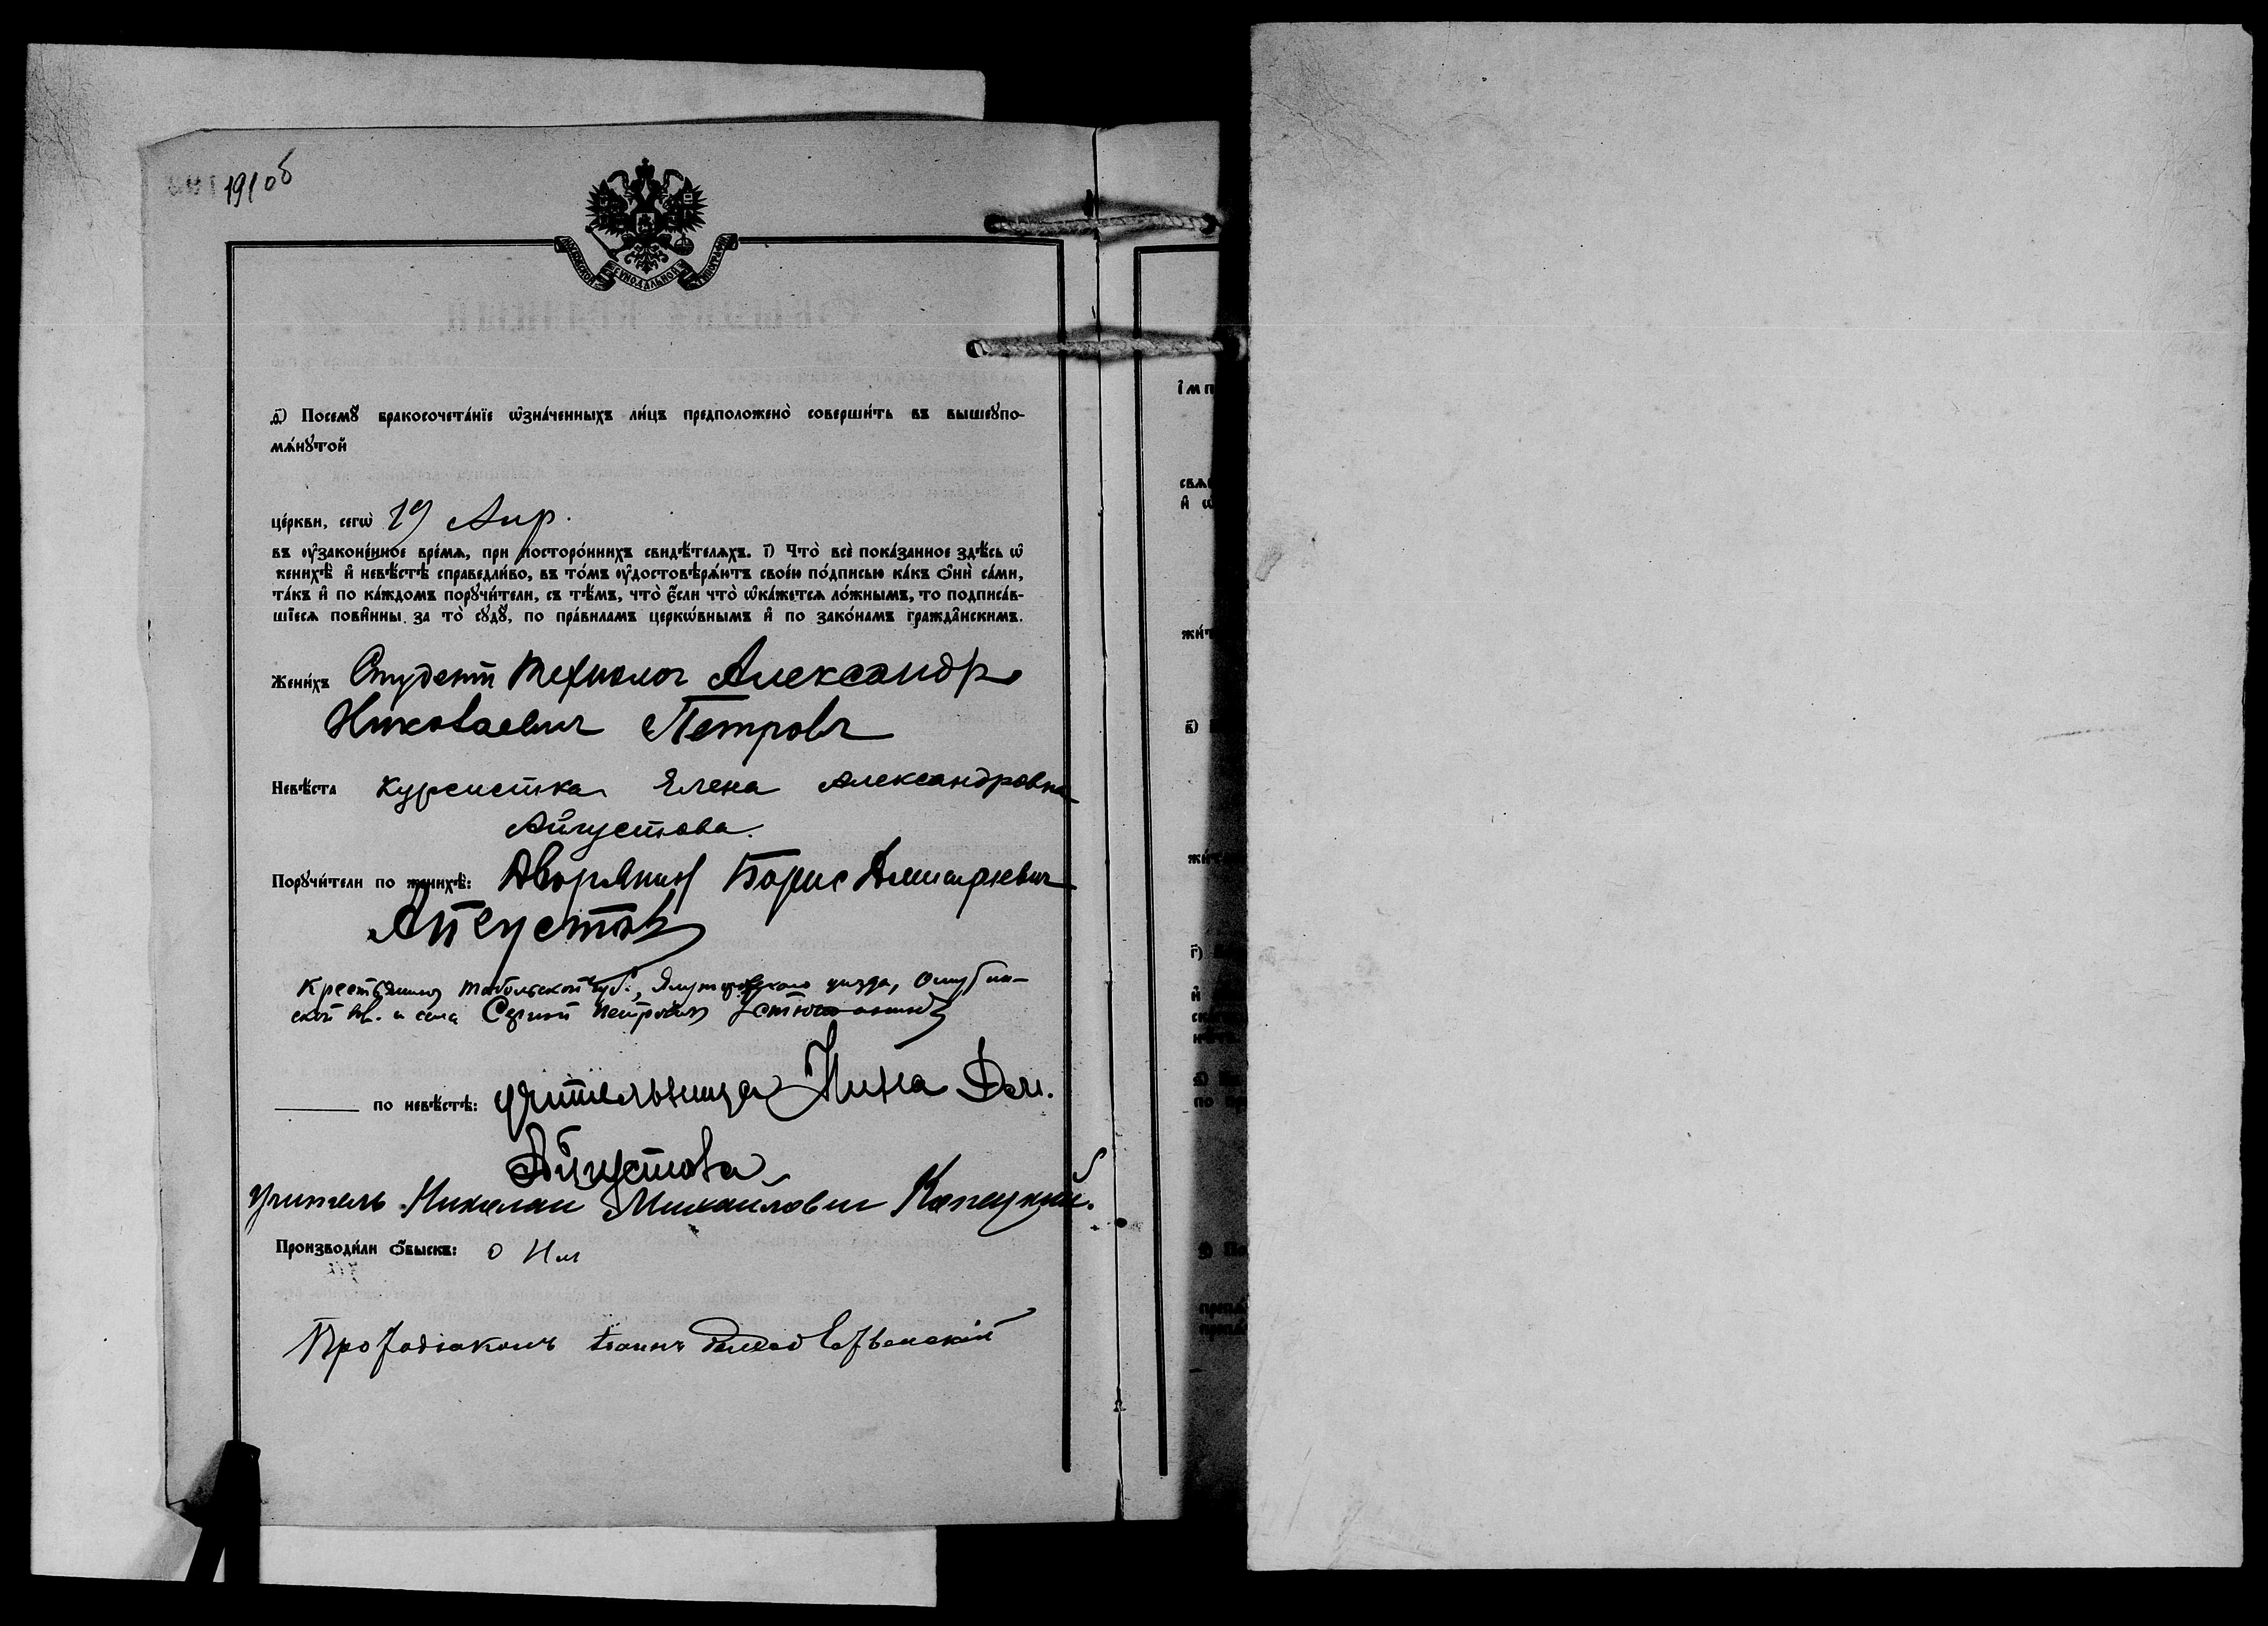 191 об
МОСКОВСКОЙ СѴНОДАЛЬНОЙ ТИПОГРАФІИ
Посемꙋ̀ бракосочета́нїе ѡ҆зна́ченныхъ ли́цъ предположено̀ соверши́ть въ вышеꙋпо-
мѧ́нꙋтой
це́ркви, сегѡ̀ 19 Апр.
въ ᲂу҆зако́не́нное вре́мѧ, при посторо́ннихъ свидѣ́телѧхъ. і҃) Что̀ всѐ пока́занное здѣ́сь ѡ҆
женихѣ̀ и҆ невѣ́стѣ справедли́во, въ то́мъ ᲂу҆достовѣрѧ́ютъ свое́ю по́дписью ка́къ ѻ҆нѝ са́ми,
та́къ и҆ по ка́ждомъ порꙋчи́тели, съ тѣ́мъ, что̀ є҆́сли что̀ ѡ҆ка́жетсѧ ло́жнымъ, то подписа́в-
шїесѧ пови́нны за то̀ сꙋдꙋ̀, по пра́виламъ церкѡ́внымъ и҆ по зако́намъ гражда́нскимъ.
Жени́хъ Студент технолог Александр
Николаевич Петровъ
Невѣ́ста Курсистка Елена Александровна
Августова.
Порꙋчи́тели по женихѣ̀: Дворянин Борис Дмитриевич
Августов
Крестьянин Тобольской губ., Ялуторовского уезда,
ской вол. и села Сергей Петрович
по невѣ́стѣ: учительница Нина Дм.
Августова
Учитель Николай Михайлович
Производи́ли ѻ҆́быскъ: О Iл
Протодіаконъ Іоаннъ